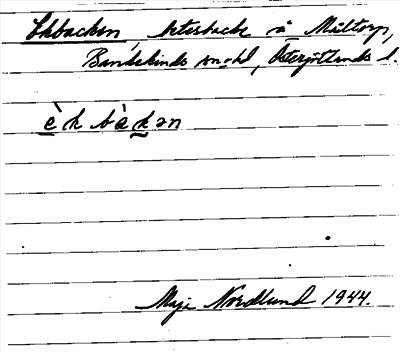 Ekbacken, betesbacke å Måltorp,
Bankekinds sn o hd, Östergötlands l.
è k b à k ə n
Maja Nordlund 1944.